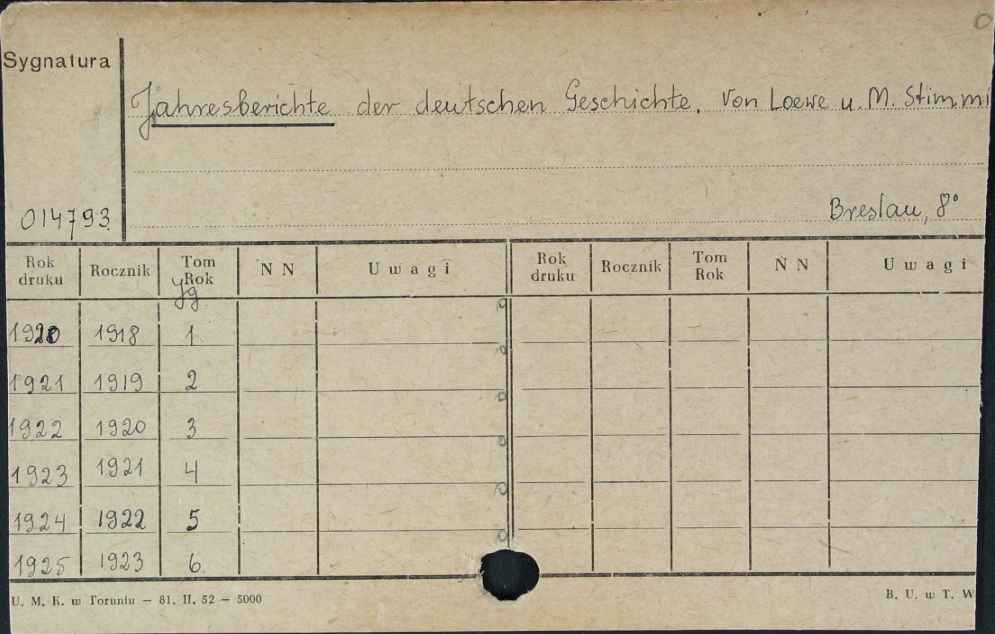 Sygnatura
Jahresberichte der deutschen Geschichte. Von Loewe u. M. Stimmi
014793.
Breslau, 8°
Rok druku Rocznik Tom Rok N N Uwagi Rok druku Rocznik Tom Rok N N Uwagi
Jg
1920 1918 1
1921 1919 2
1922 1920 3
1923 1921 4
1924 1922 5
1925 1923 6.
U. M. K. w Toruniu — 81. II. 52 — 5000 B. U. w T. W